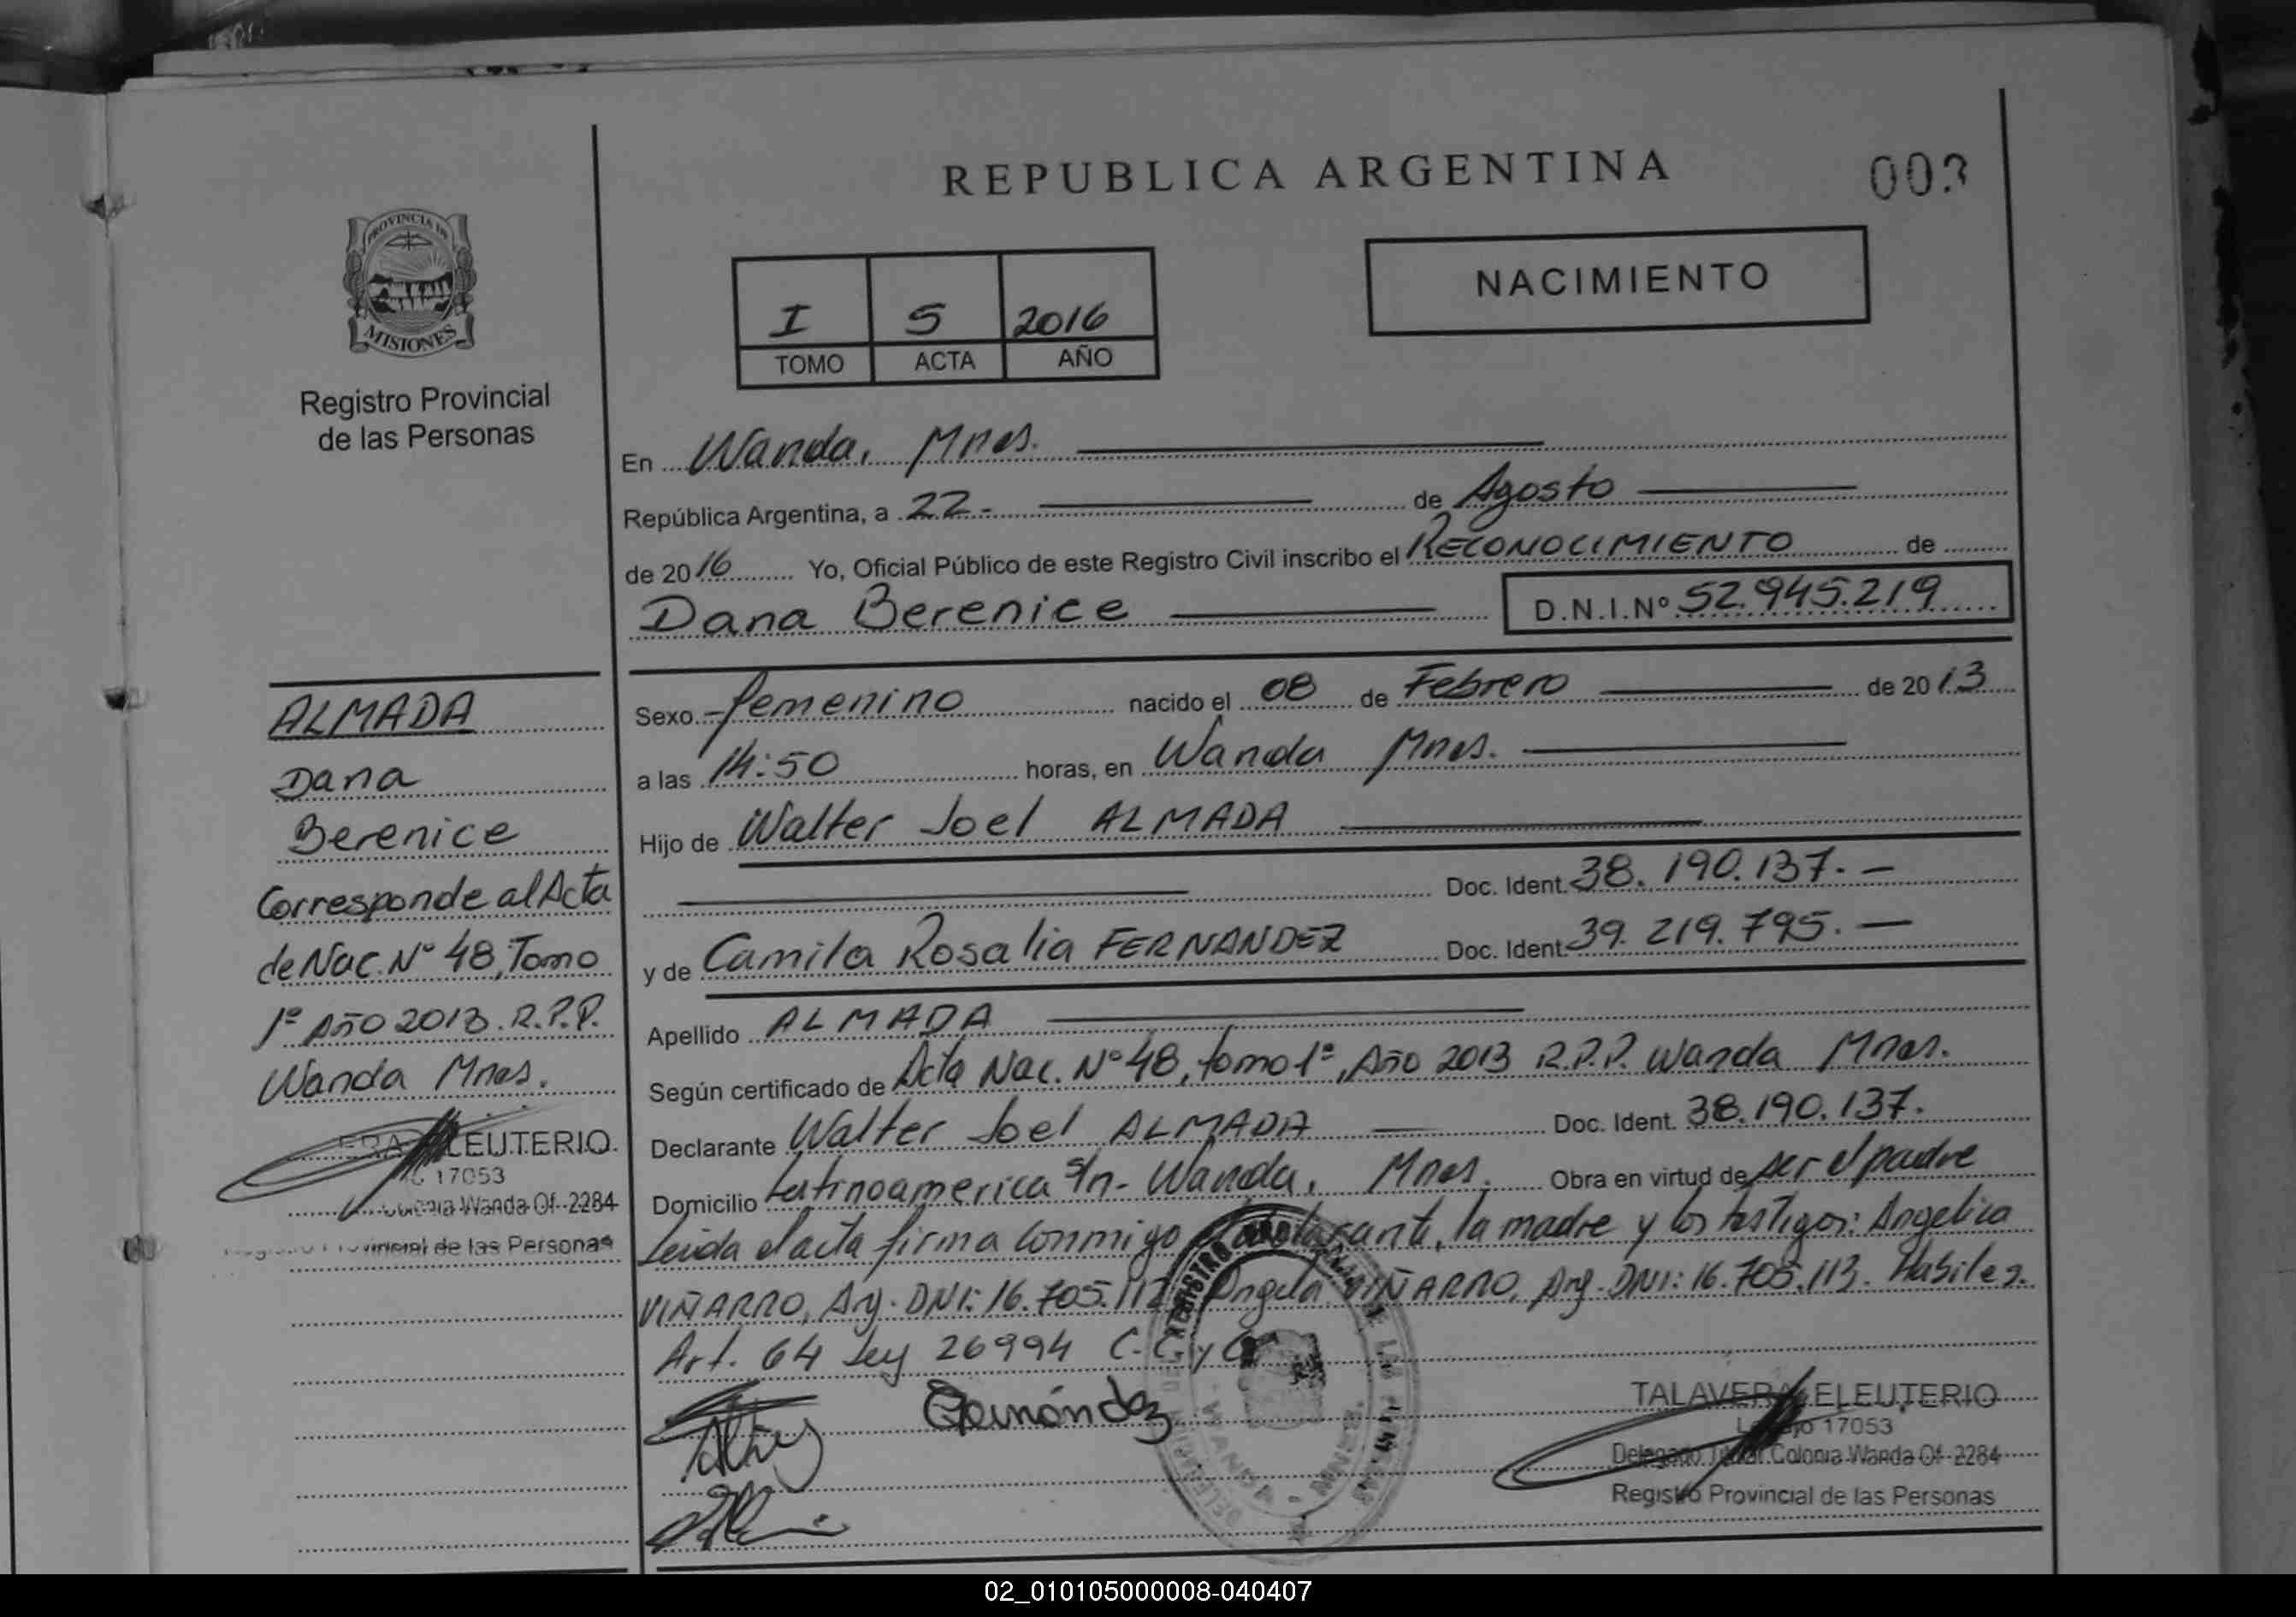 REPUBLICA ARGENTINA
003
PROVINCIA DE
MISIONES
Registro Provincial
de las Personas
I 5 2016
TOMO ACTA AÑO
NACIMIENTO
En Wanda, Mnes.
República Argentina, a 22- de Agosto
de 2016 Yo, Oficial Público de este Registro Civil inscribo el RECONOCIMIENTO de
Dana Berenice D.N.I.Nº 52.945.219
Sexo femenino nacido el 08 de Febrero de 2013
a las 14:50 horas, en Wanda Mnes.
Hijo de Walter Joel ALMADA
Doc. Ident. 38.190.137.-
y de Camila Rosalia FERNANDEZ Doc. Ident. 39.219.795.-
Apellido ALMADA
Según certificado de Acta Nac. Nº 48, tomo 1º, Año 2013 R.P.P. Wanda Mnes.
Declarante Walter Joel ALMADA Doc. Ident. 38.190.137.
Domicilio Latinoamerica s/n- Wanda, Mnes. Obra en virtud de ser el padre
Leida el acta firma conmigo declarante, la madre y los testigos: Angelica
VIÑARRO, Arg. DNI: 16.705.112 Angela VIÑARRO, Arg. DNI: 16.705.113. Habiles.
Art. 64 Ley 26994 C.C. y C
ALMADA
Dana
Berenice
Corresponde al Acta
de Nac. Nº 48, Tomo
1º Año 2013. R.P.P.
Wanda Mnes.
ELEUTERIO
17053
Wanda Of-2284
de las Personas
TALAVERA ELEUTERIO
17053
Delegado Titular Colonia Wanda Of-2284
Registro Provincial de las Personas
02_010105000008-040407